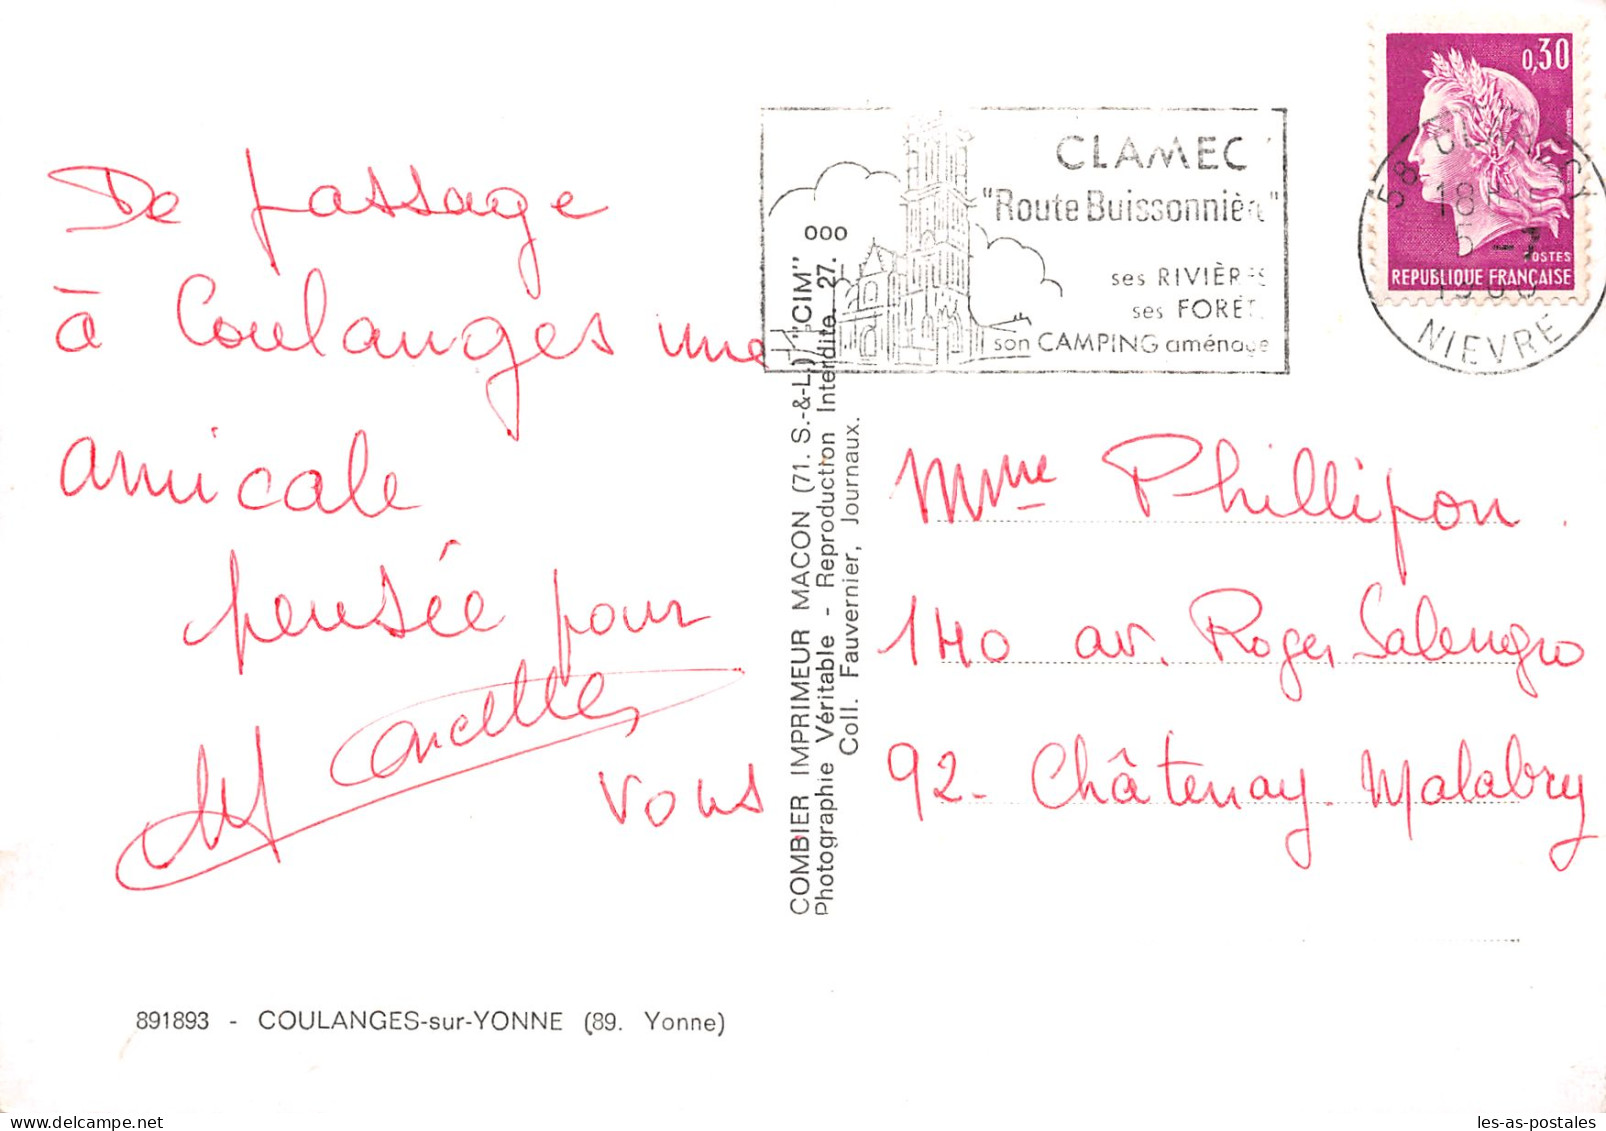 De passage
à Coulanges une
amicale
pensée pour
vous
891893 - COULANGES-sur-YONNE (89. Yonne)
COMBIER IMPRIMEUR MACON (71. S.-&-L.) "CIM"
Photographie Véritable - Reproduction Interdite. 27.
Coll. Fauvernier, Journaux.
ooo
CLAMEC
"Route Buissonnière"
ses RIVIÈRES
ses FORÊT
son CAMPING aménage
0,30
POSTES
REPUBLIQUE FRANÇAISE
58 CLAMECY
18H
NIEVRE
Mme Phillipon.
140 av. Roger Salengro
92- Châtenay-Malabry
les-as-postales